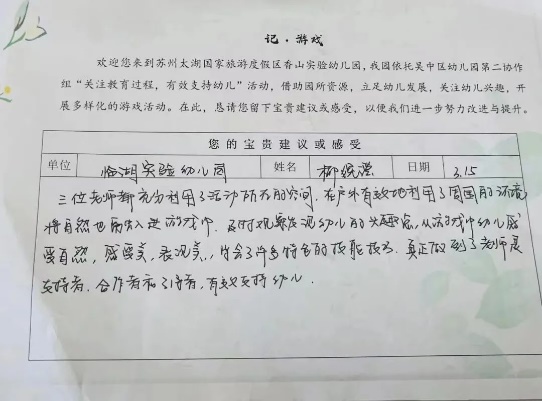 记·游戏
欢迎您来到苏州太湖国家旅游度假区香山实验幼儿园，我园依托吴中区幼儿园第二协作
组“关注教育过程，有效支持幼儿”活动，借助园所资源，立足幼儿发展，关注幼儿兴趣，开
展多样化的游戏活动。在此，恳请您留下宝贵建议或感受，以便我们进一步努力改进与提升。
您的宝贵建议或感受
单位 临湖实验幼儿园 姓名 柳 日期 3.15
三位老师都充分利用了活动所有的空间，在户外有效地利用了周围的环境
将自然也融入进游戏中，及时观察发现幼儿的兴趣点，从游戏中幼儿感
受自然，感受美，表现美，包含了许多特色的技能技巧，真正做到了老师是
支持者，合作者和引导者，有效支持幼儿.